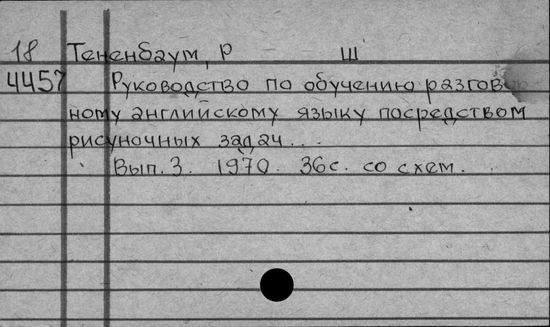 18 Тененбаум, Р Ш
4457 Руководство по обучению разгов
ному английскому языку посредством
рисуночных задач...
Вып. 3. 1970. 36с. со схем.